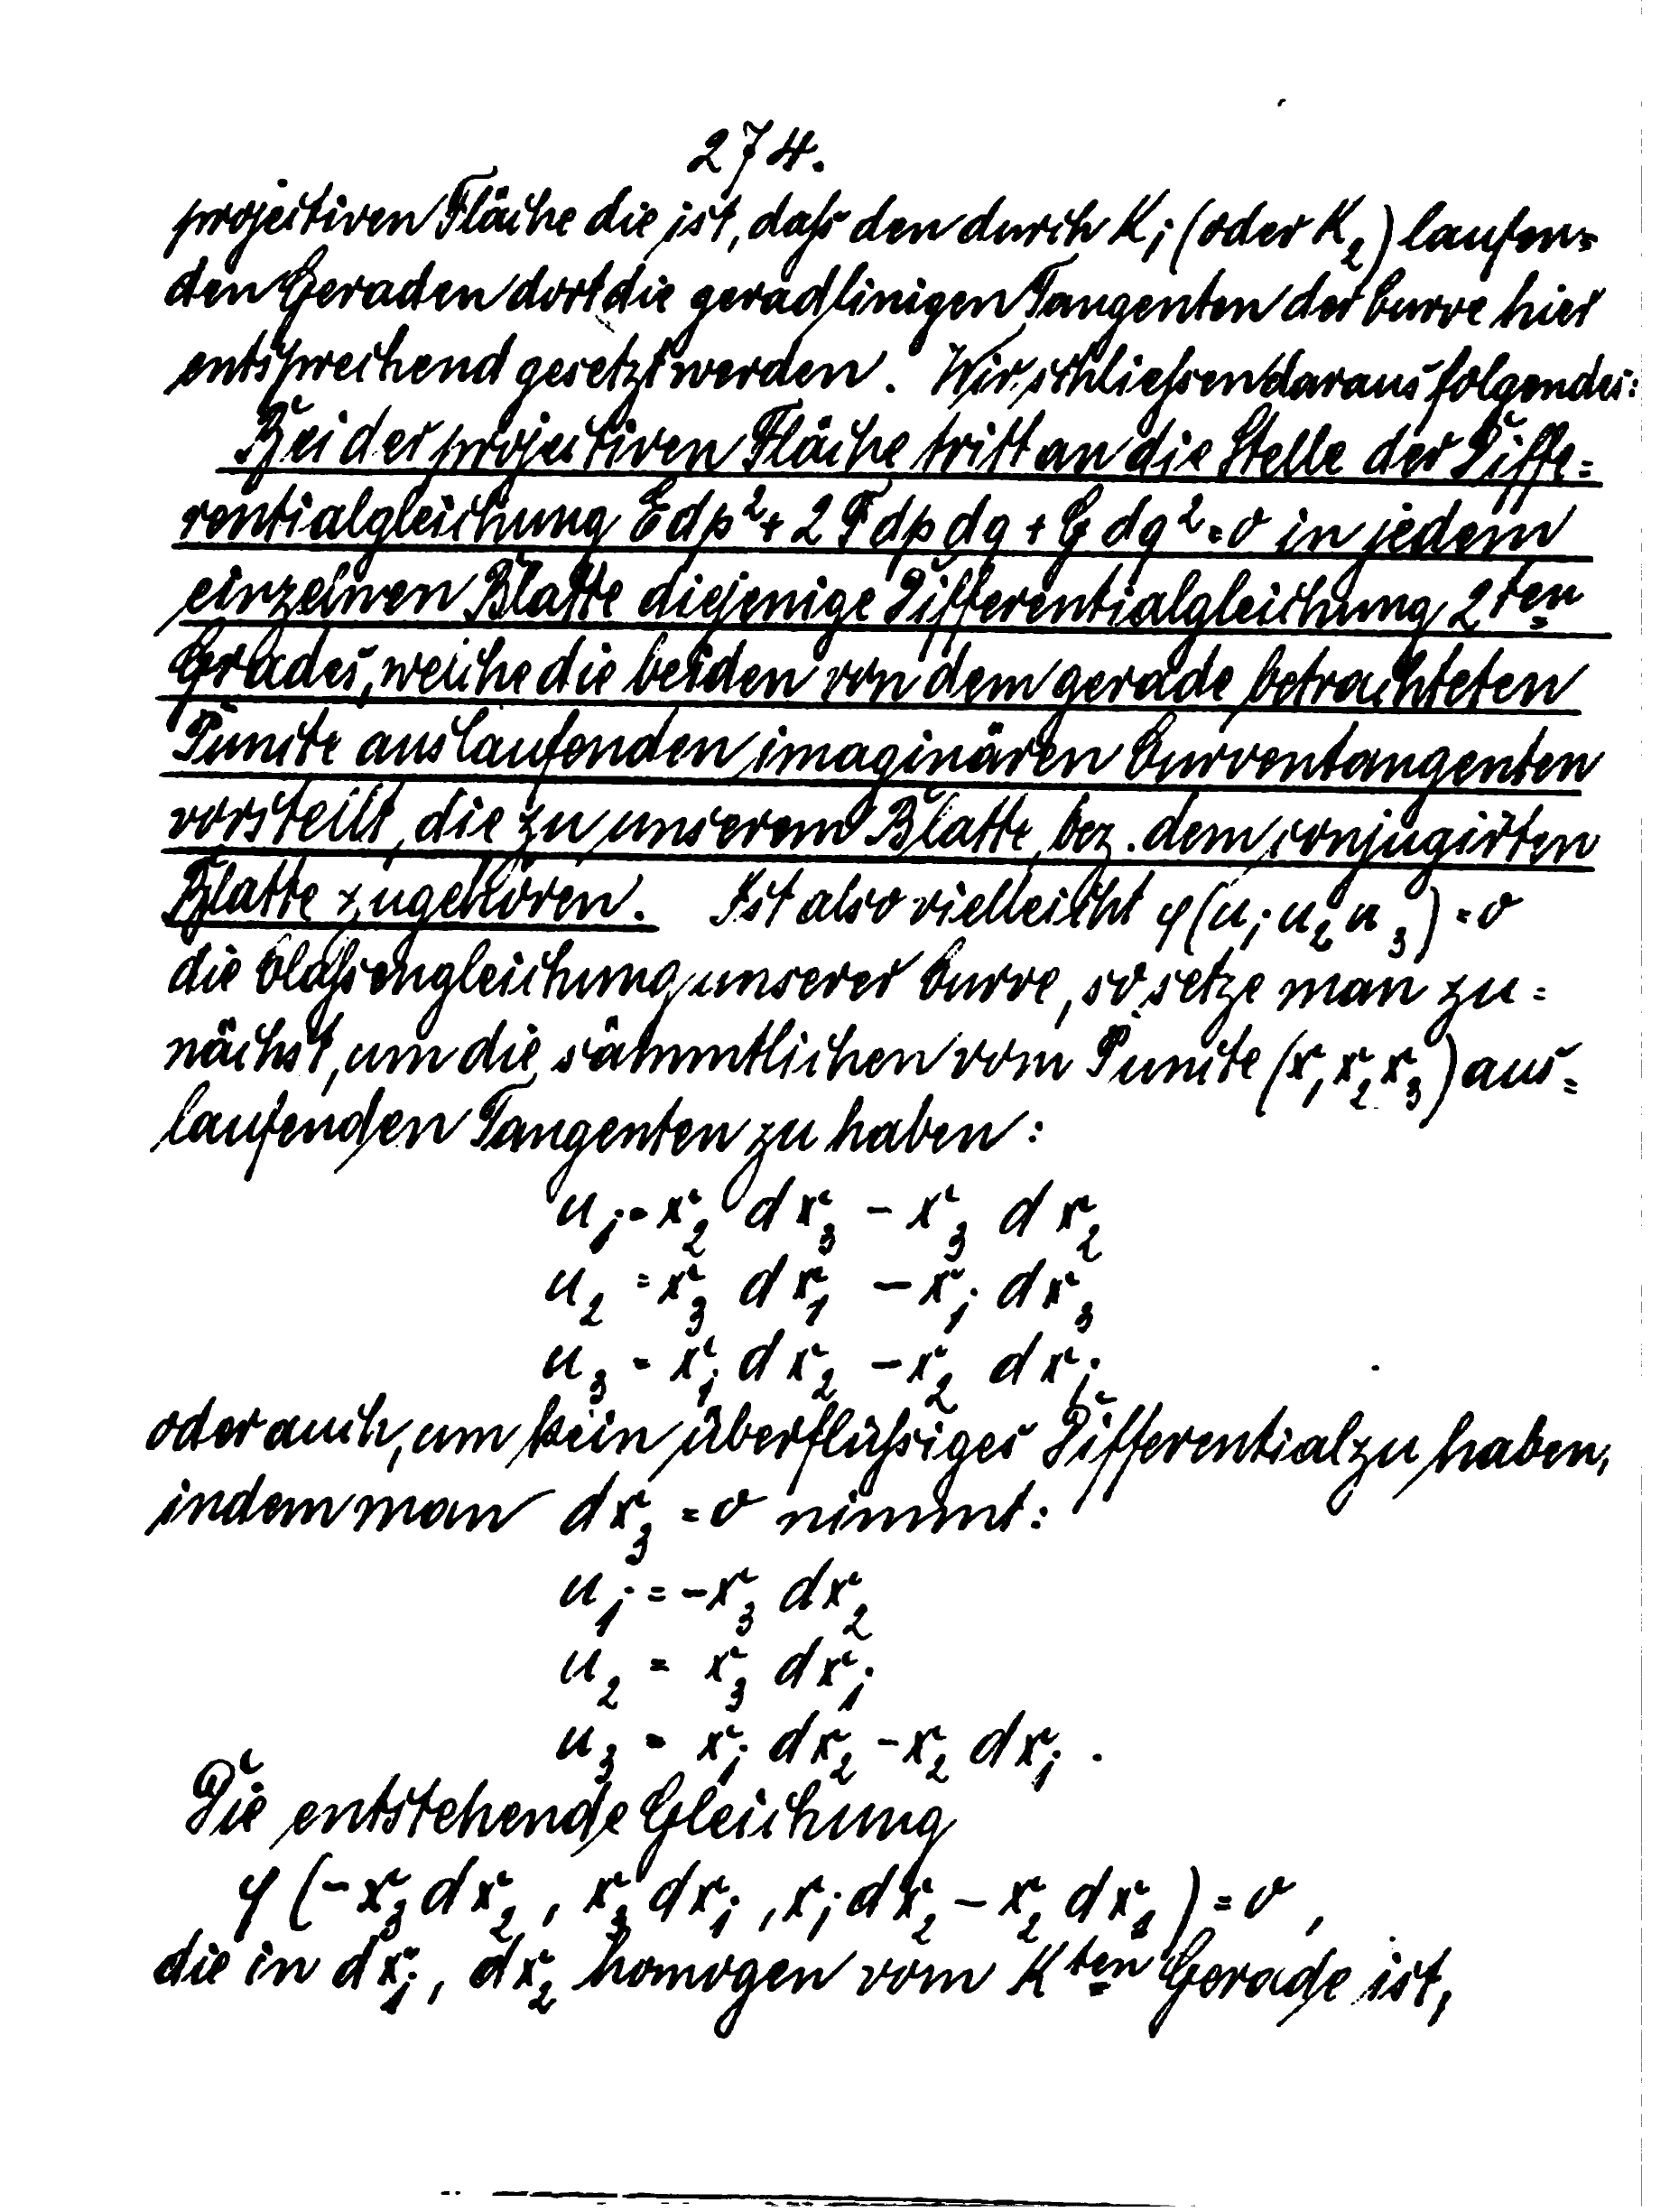 274.
projectiven Fläche die ist, daß den durch K₁ (oder K₂) laufen=
den Geraden dort die geradlinigen Tangenten der Curve hier
entsprechend gesetzt werden. Wir schließen daraus folgendes:
Bei der projectiven Fläche tritt an die Stelle der Diffe=
rentialgleichung Edp² + 2 F dp dq + G dq² = 0 in jedem
einzelnen Blatte diejenige Differentialgleichung 2ten
Grades, welche die beiden von dem gerade betrachteten
Puncte auslaufenden imaginären Curventangenten
vorstellt, die zu unserem Blatte, bez. dem conjugirten
Blatte zugehören. Ist also vielleicht φ(u₁ u₂ u₃) = 0
die Claßengleichung unserer Curve, so setze man zu=
nächst, um die sämmtlichen vom Puncte (x₁ x₂ x₃) aus=
laufenden Tangenten zu haben:
u₁ = x₂ dx₃ - x₃ dx₂
u₂ = x₃ dx₁ - x₁ dx₃
u₃ = x₁ dx₂ - x₂ dx₁
oder auch, um kein überflüßiges Differential zu haben,
indem man dx₃ = 0 nimmt:
u₁ = -x₃ dx₂
u₂ = x₃ dx₁
u₃ = x₁ dx₂ - x₂ dx₁ .
Die entstehende Gleichung
φ (-x₃ dx₂ , x₃ dx₁ , x₁ dx₂ - x₂ dx₁ ) = 0 ,
die in dx₁, dx₂ homogen vom Kten Gerade ist,